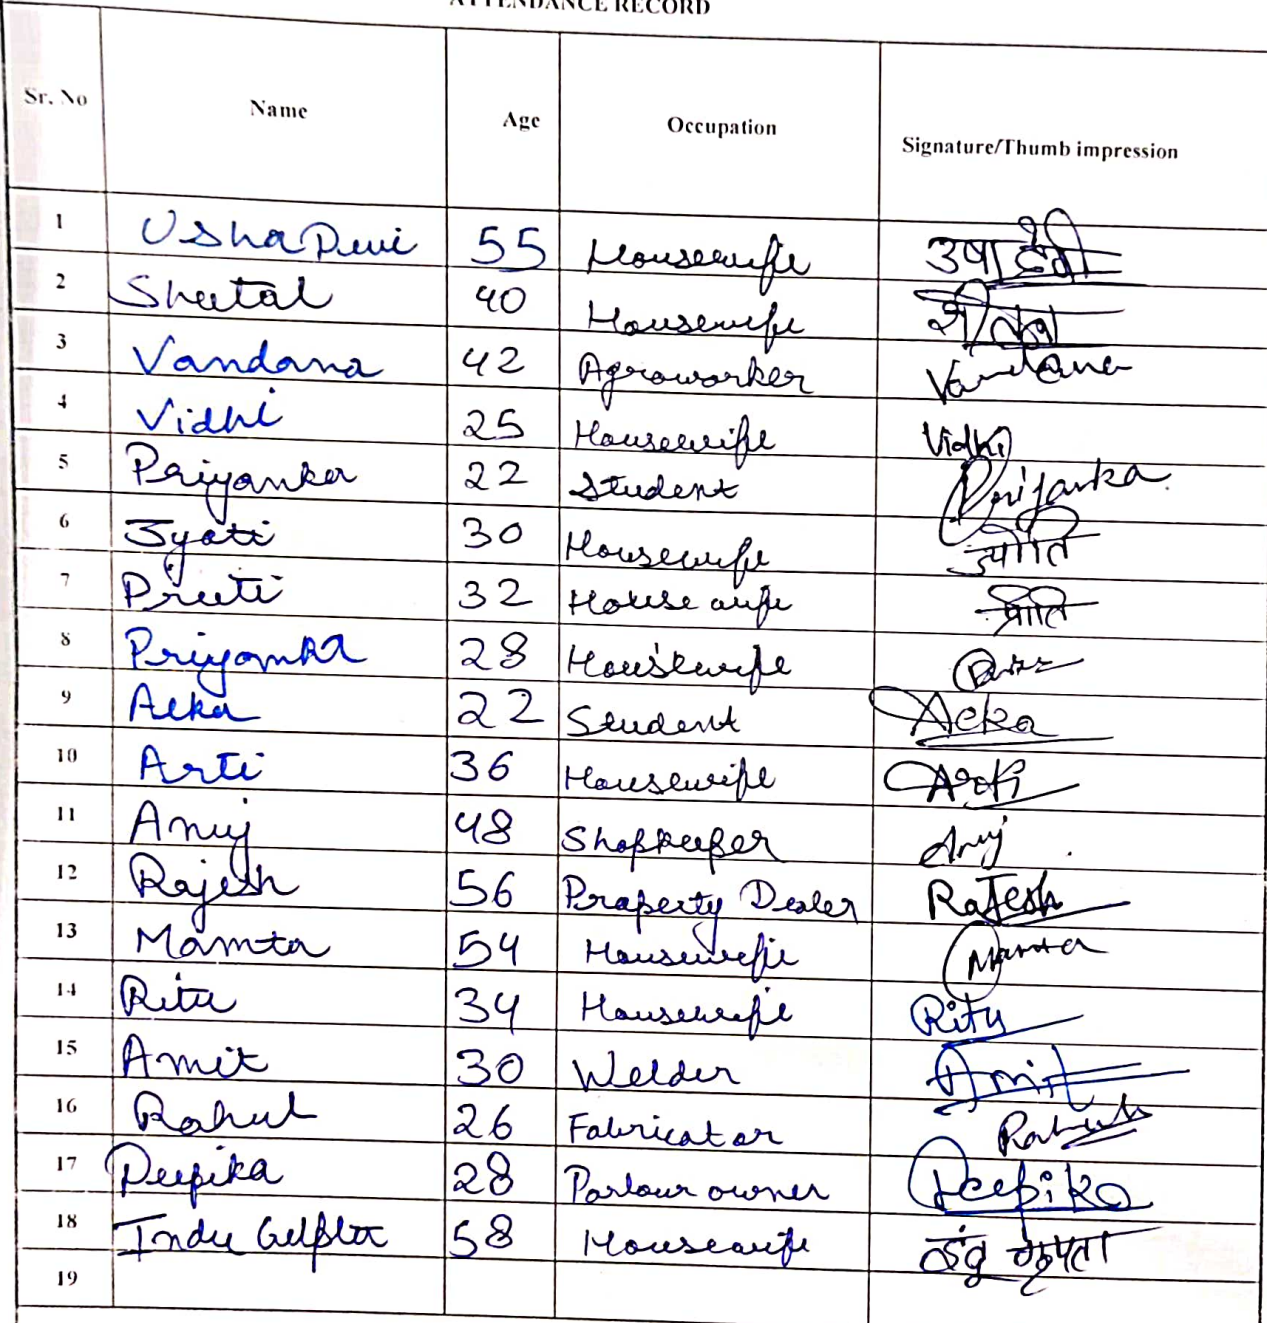 ATTENDANCE RECORD
Sr. No Name Age Occupation Signature/Thumb impression
1 Usha Devi 55 Housewife उषा देवी
2 Sheetal 40 Housewife शीतल
3 Vandana 42 Agroworker Vandana
4 Vidhi 25 Housewife Vidhi
5 Priyanka 22 Student Priyanka
6 Jyoti 30 Housewife ज्योति
7 Preeti 32 Housewife प्रीति
8 Priyanka 28 Housewife
9 Alka 22 Student Alka
10 Arti 36 Housewife Arti
11 Anuj 48 Shopkeeper Anuj
12 Rajesh 56 Property Dealer Rajesh
13 Mamta 54 Housewife Mamta
14 Ritu 34 Housewife Ritu
15 Amit 30 Welder Amit
16 Rahul 26 Fabricator Rahul
17 Deepika 28 Parlour owner Deepika
18 Indu Gupta 58 Housewife इंदु गुप्ता
19